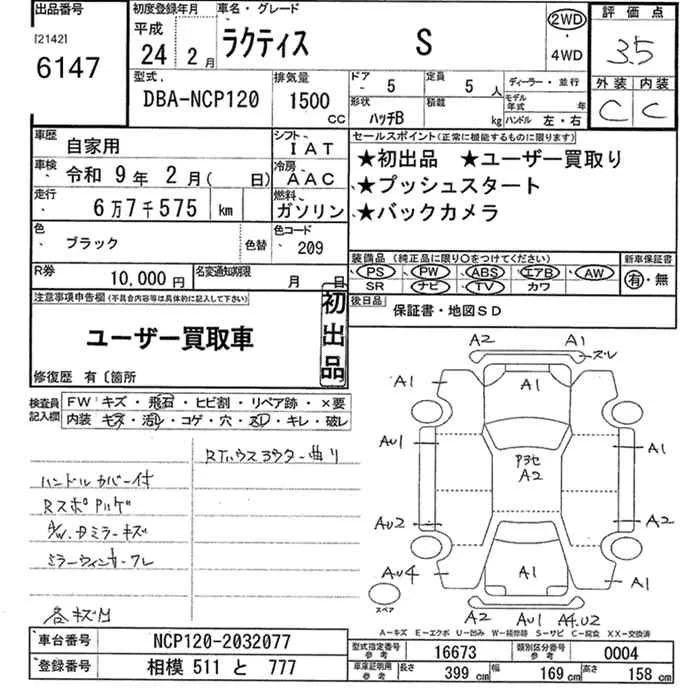 出品番号
[2142]
6147
初度登録年月
平成
24 2月
車名・グレード
ラクティス S
2WD
・
4WD
評価点
3.5
外装 内装
C C
型式
DBA-NCP120
排気量
1500
CC
ドア 5
定員 5 人
形状 ハッチB
積載 kg
ディーラー・並行
モデル年式 年
ハンドル 左・右
車歴 自家用
シフト IAT
車検 令和 9年 2月( 日)
冷房 AAC
走行 6万7千575 km
燃料 ガソリン
色 ブラック
色替
色コード 209
R券 10,000円
名変通知期限 月 日
セールスポイント(正常に機能するものに限ります)
★初出品 ★ユーザー買取り
★プッシュスタート
★バックカメラ
装備品 (純正品に限り○をつけてください)
新車保証書
PS PW ABS エアB AW
SR ナビ TV カワ
有・無
後日品 保証書・地図SD
注意事項申告欄(不具合内容等は具体的に記入して下さい)
初出品
ユーザー買取車
修復歴 有〔箇所
検査員記入欄
FW キズ・飛石・ヒビ割・リペア跡・×要
内装 キズ・汚れ・コゲ・穴・スレ・キレ・破レ
ハンドルカバー付
RスポPハゲ
A/W.ドミラーキズ
ミラーウィンカーワレ
各キズ凹
A2 A1
ズレ
A1 A1 A1
AU1 A1
P3セ
A2
AU2 A2
AU4 A1 A1
スペア
A2 AU1 A4.U2
A-キズ E-エクボ U-凹み W-補修跡 S-サビ C-腐食 XX-交換済
車台番号 NCP120-2032077
登録番号 相模 511 と 777
型式指定番号 参考 16673
類別区分番号 参考 0004
車庫証明用 参考 長さ 399 cm 幅 169 cm 高さ 158 cm